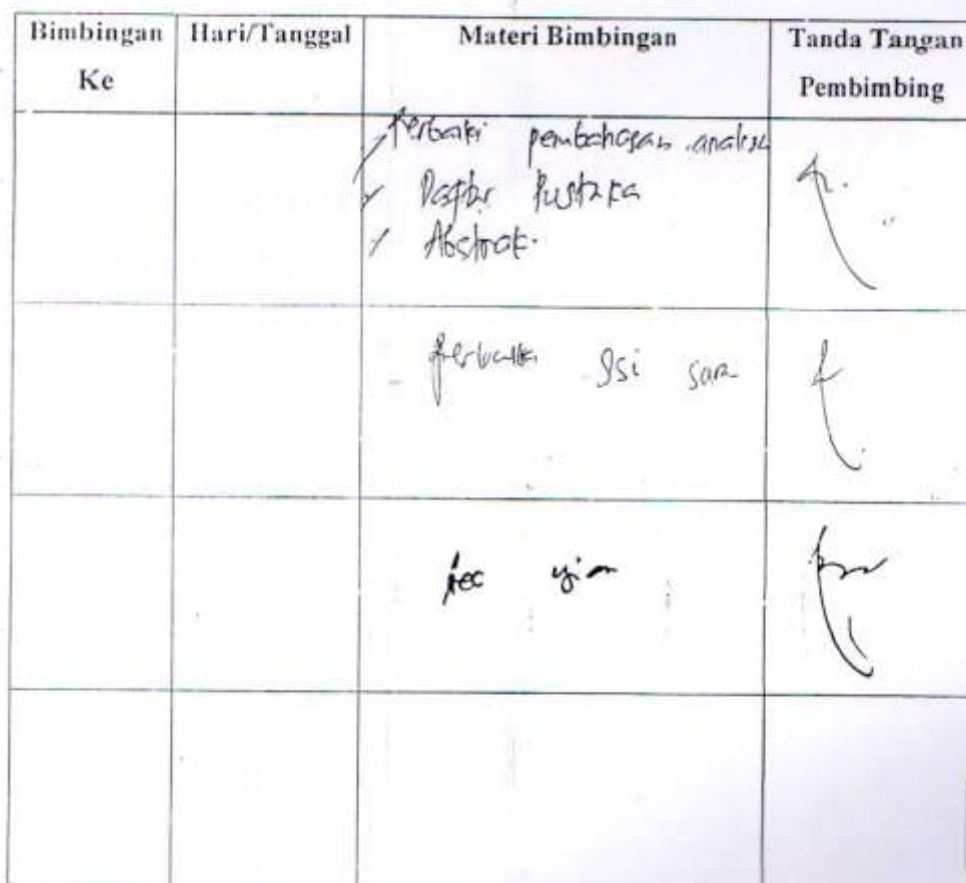 Bimbingan Ke
Hari/Tanggal
Materi Bimbingan
Tanda Tangan Pembimbing
Perbaiki pembahasan analisa
Daftar Pustaka
Abstrak.
Perbaiki Isi
Acc ujian